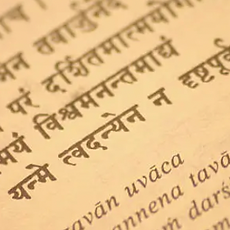 च ।
न तवार्जुनेदं
परं दर्शितमात्मयोग
मयं विश्वमनन्तमाद्यं
यन्मे त्वदन्येन न दृष्टपूर्व
avān uvāca
annena tavā
ṁ darś